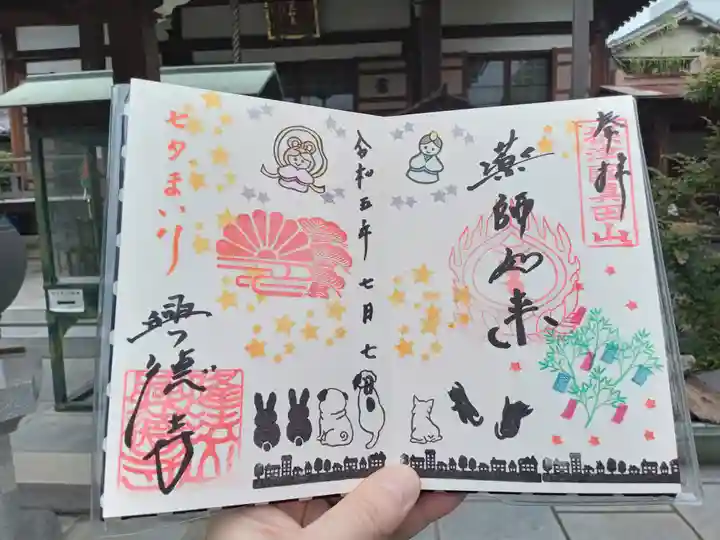 奉拝
薬師如来
令和五年七月七日
七夕まいり
興徳寺